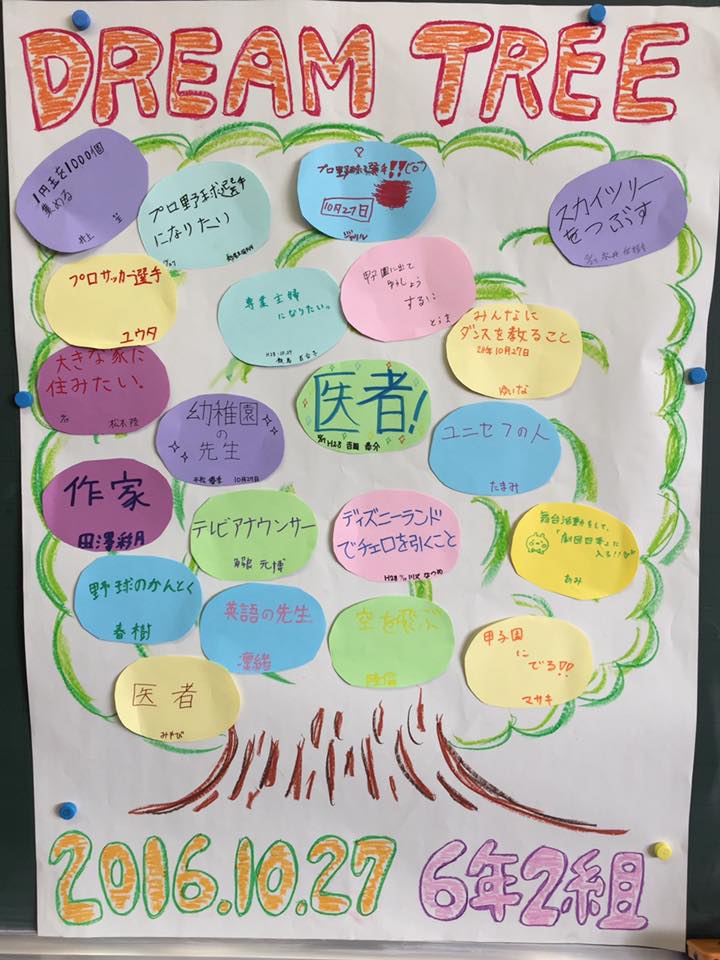 DREAM TREE
1円玉を1000個
集める
井上
プロ野球選手
になりたい
プロ野球選手!!
10月27日
スカイツリー
をつぶす
プロサッカー選手
ユウタ
専業主婦
になりたい。
H28.10.27
甲子園に出て
するい
とうま
みんなに
ダンスを教ること
28年10月27日
ゆいな
大きな家に
住みたい。
松本陸
幼稚園
の
先生
10月27日
医者!
H28 吉岡
ユニセフの人
たまみ
作家
田澤彩月
テレビアナウンサー
元博
ディズニーランド
でチェロを引くこと
H28 川沢 なつめ
舞台活動をして、
「劇団四季」に
入る!!
あみ
野球のかんとく
春樹
英語の先生
凜緒
空を飛ぶ
甲子園
に
でる!!
マサキ
医者
みやび
2016.10.27
6年2組